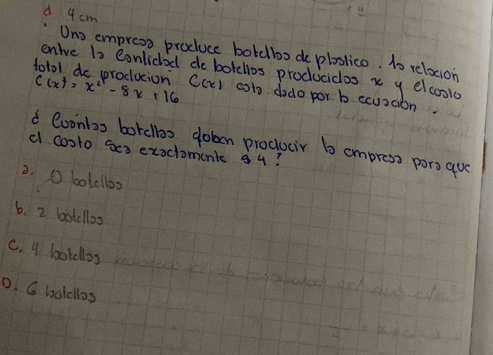 d 4 cm
• Una empresa produce botellas de plastico. la relación
entre la Cantidad de botellas producidas x y el costo
total de producion C(x) esta dado por la ecuación.
C(x) = x² - 8x + 16
¿ Cuántas botellas deben producir la empresa para que
el costo sea exactamente $ 4?
a. 0 botellas
b. 2 botellas
C. 4 botellas
D. 6 botellas